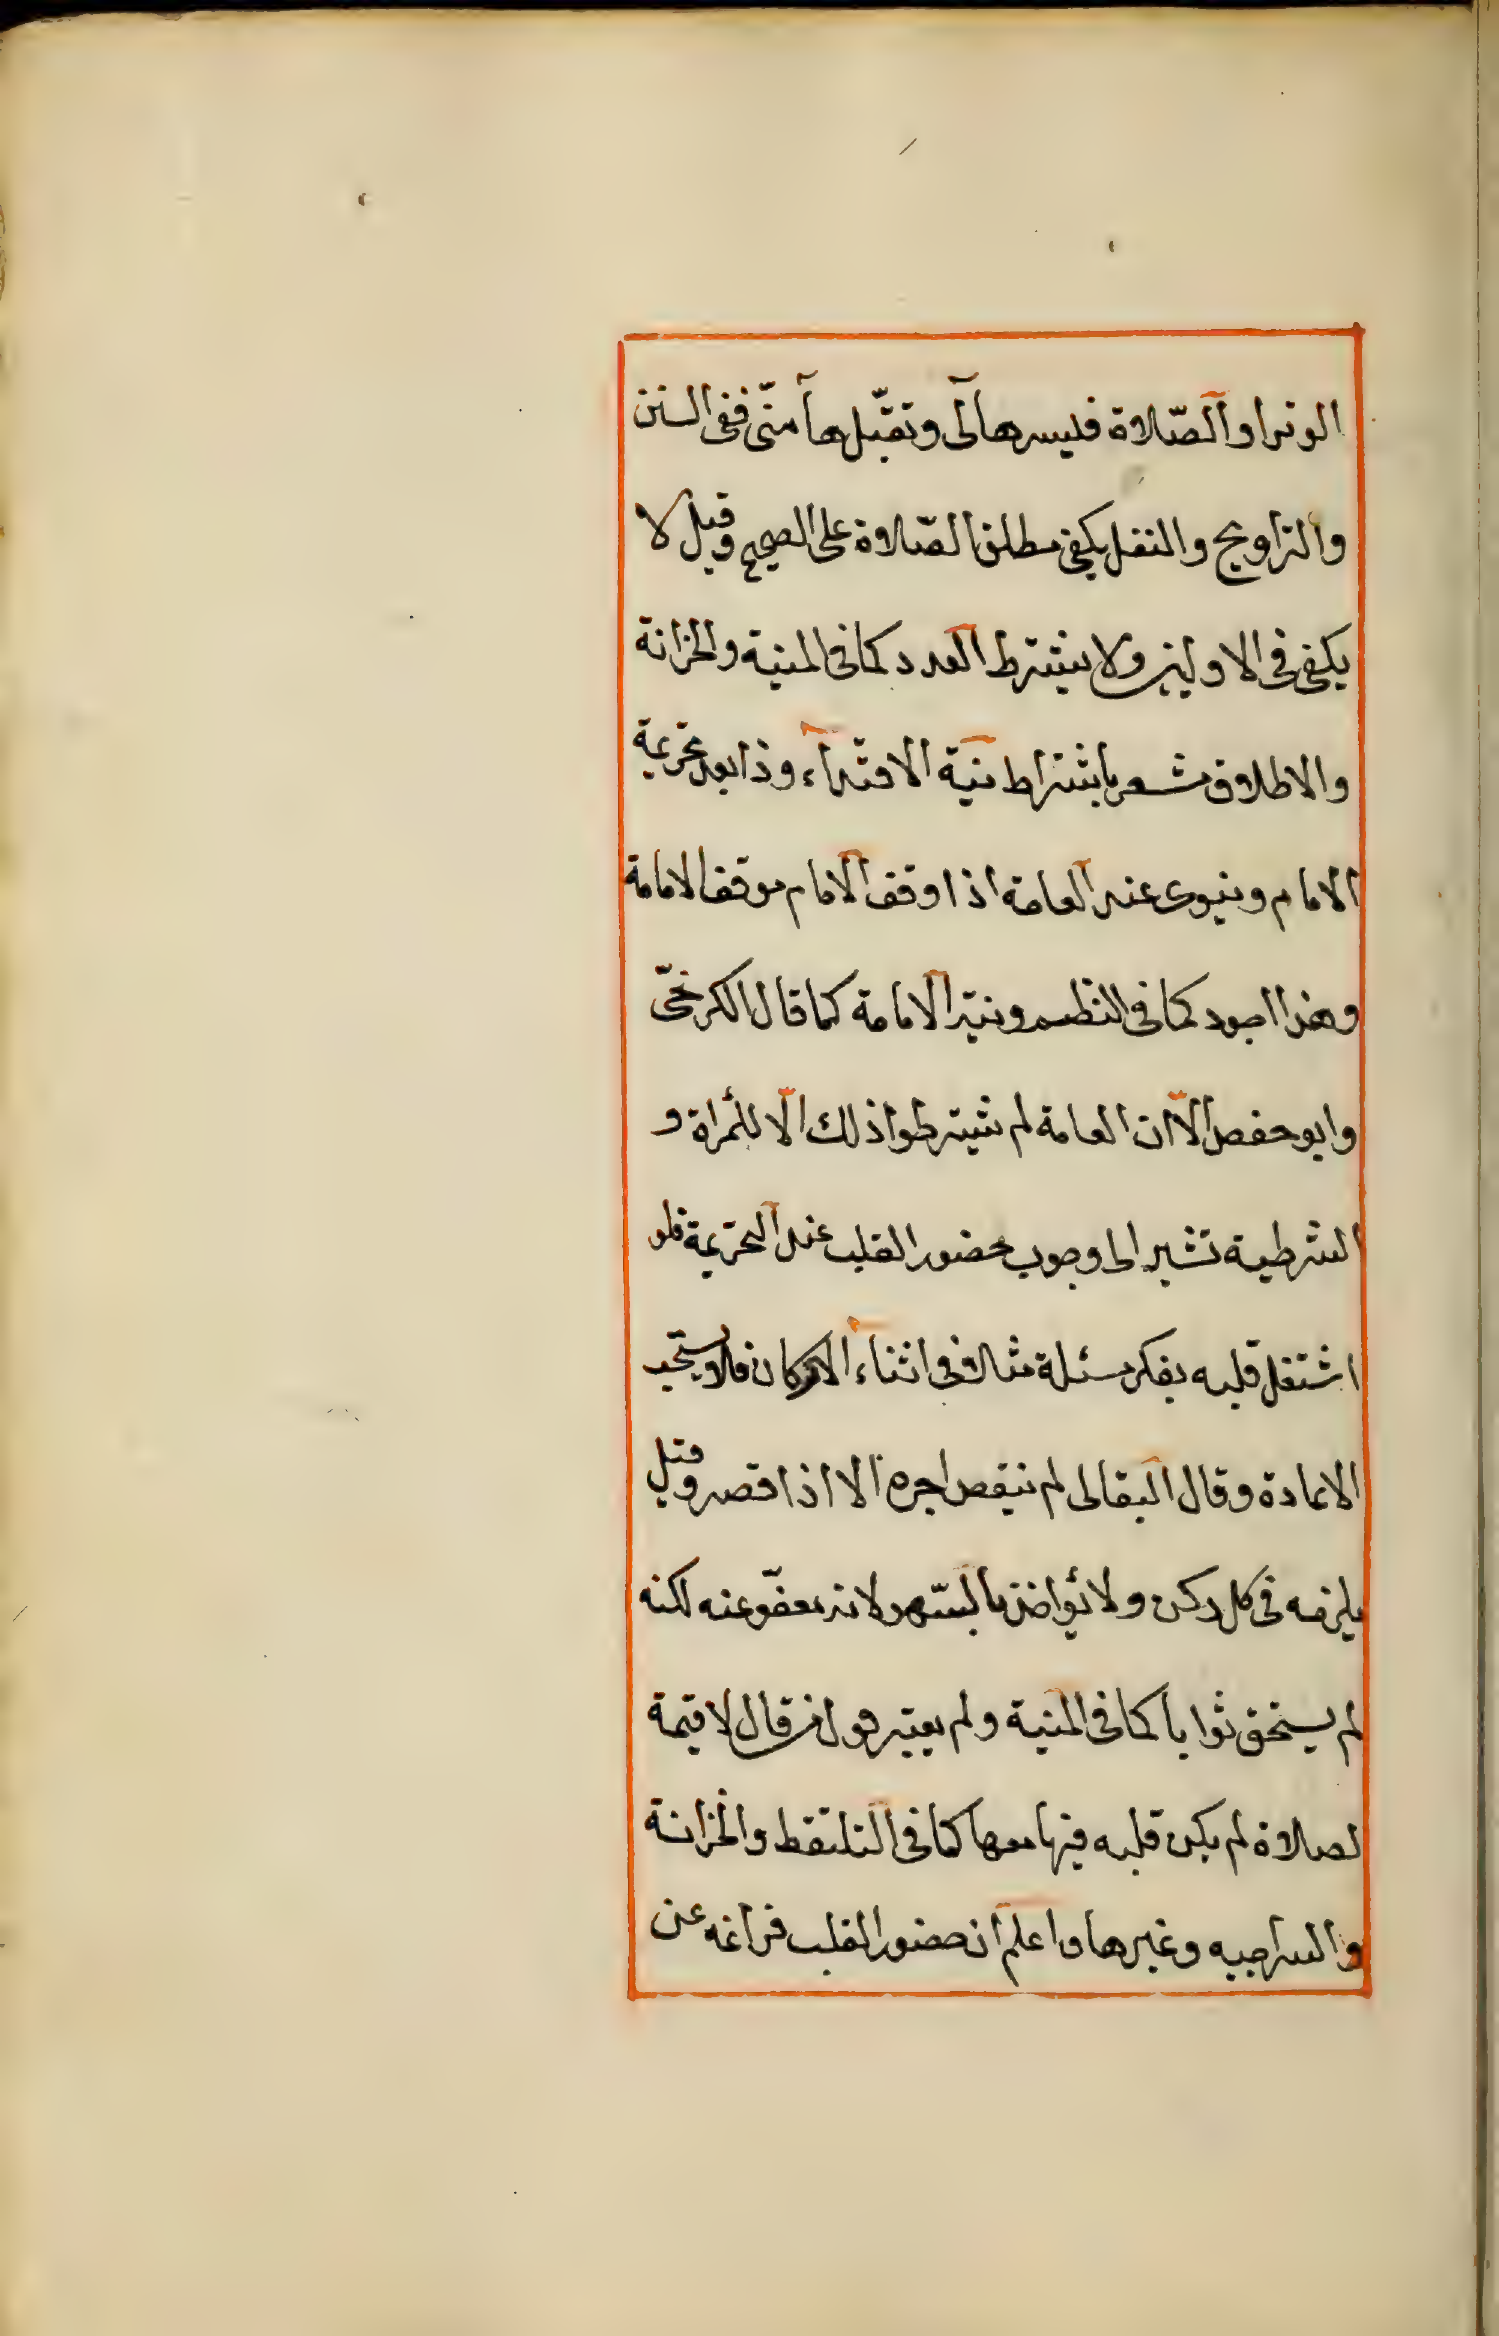 الوتر او الصّلاة فيسرها لى وتقبّلها منّى ففى السنن
والتراويح والنفل يكفى مطلق الصّلاة على الصحيح وقيل لا
يكفى فى الاوليين ولا يشترط العدد كما فى المنية والخزانة
والاطلاق مشعر باشتراط نية الاقتداء وذا بعد تحريمة
الامام وينوى عند العامة اذا وقف الامام موقف الامامة
وهذا اجود كما فى النظم ونية الامامة كما قال الكرخىّ
وابو حفص الّا ان العامة لم يشترطوا ذلك الّا للمرأة و
الشرطية تشير الى وجوب حضور القلب عند التحريمة فلو
اشتغل قلبه بفكر مسئلة مثلا فى اثناء الاركان فلا يستحب
الاعادة وقال البقالى لم ينقص اجره الا اذا قصر وقيل
يلزمه فى كل ركن ولا يؤاخذ بالسّهو لانه معفوّ عنه لكنه
لم يستحق ثوابا كما فى المنية ولم يعتبر قول من قال لا قيمة
لصلاة لم يكن قلبه فيها معها كما فى الملتقط والخزانة
والسراجيه وغيرها واعلم ان حضور القلب فراغه عن